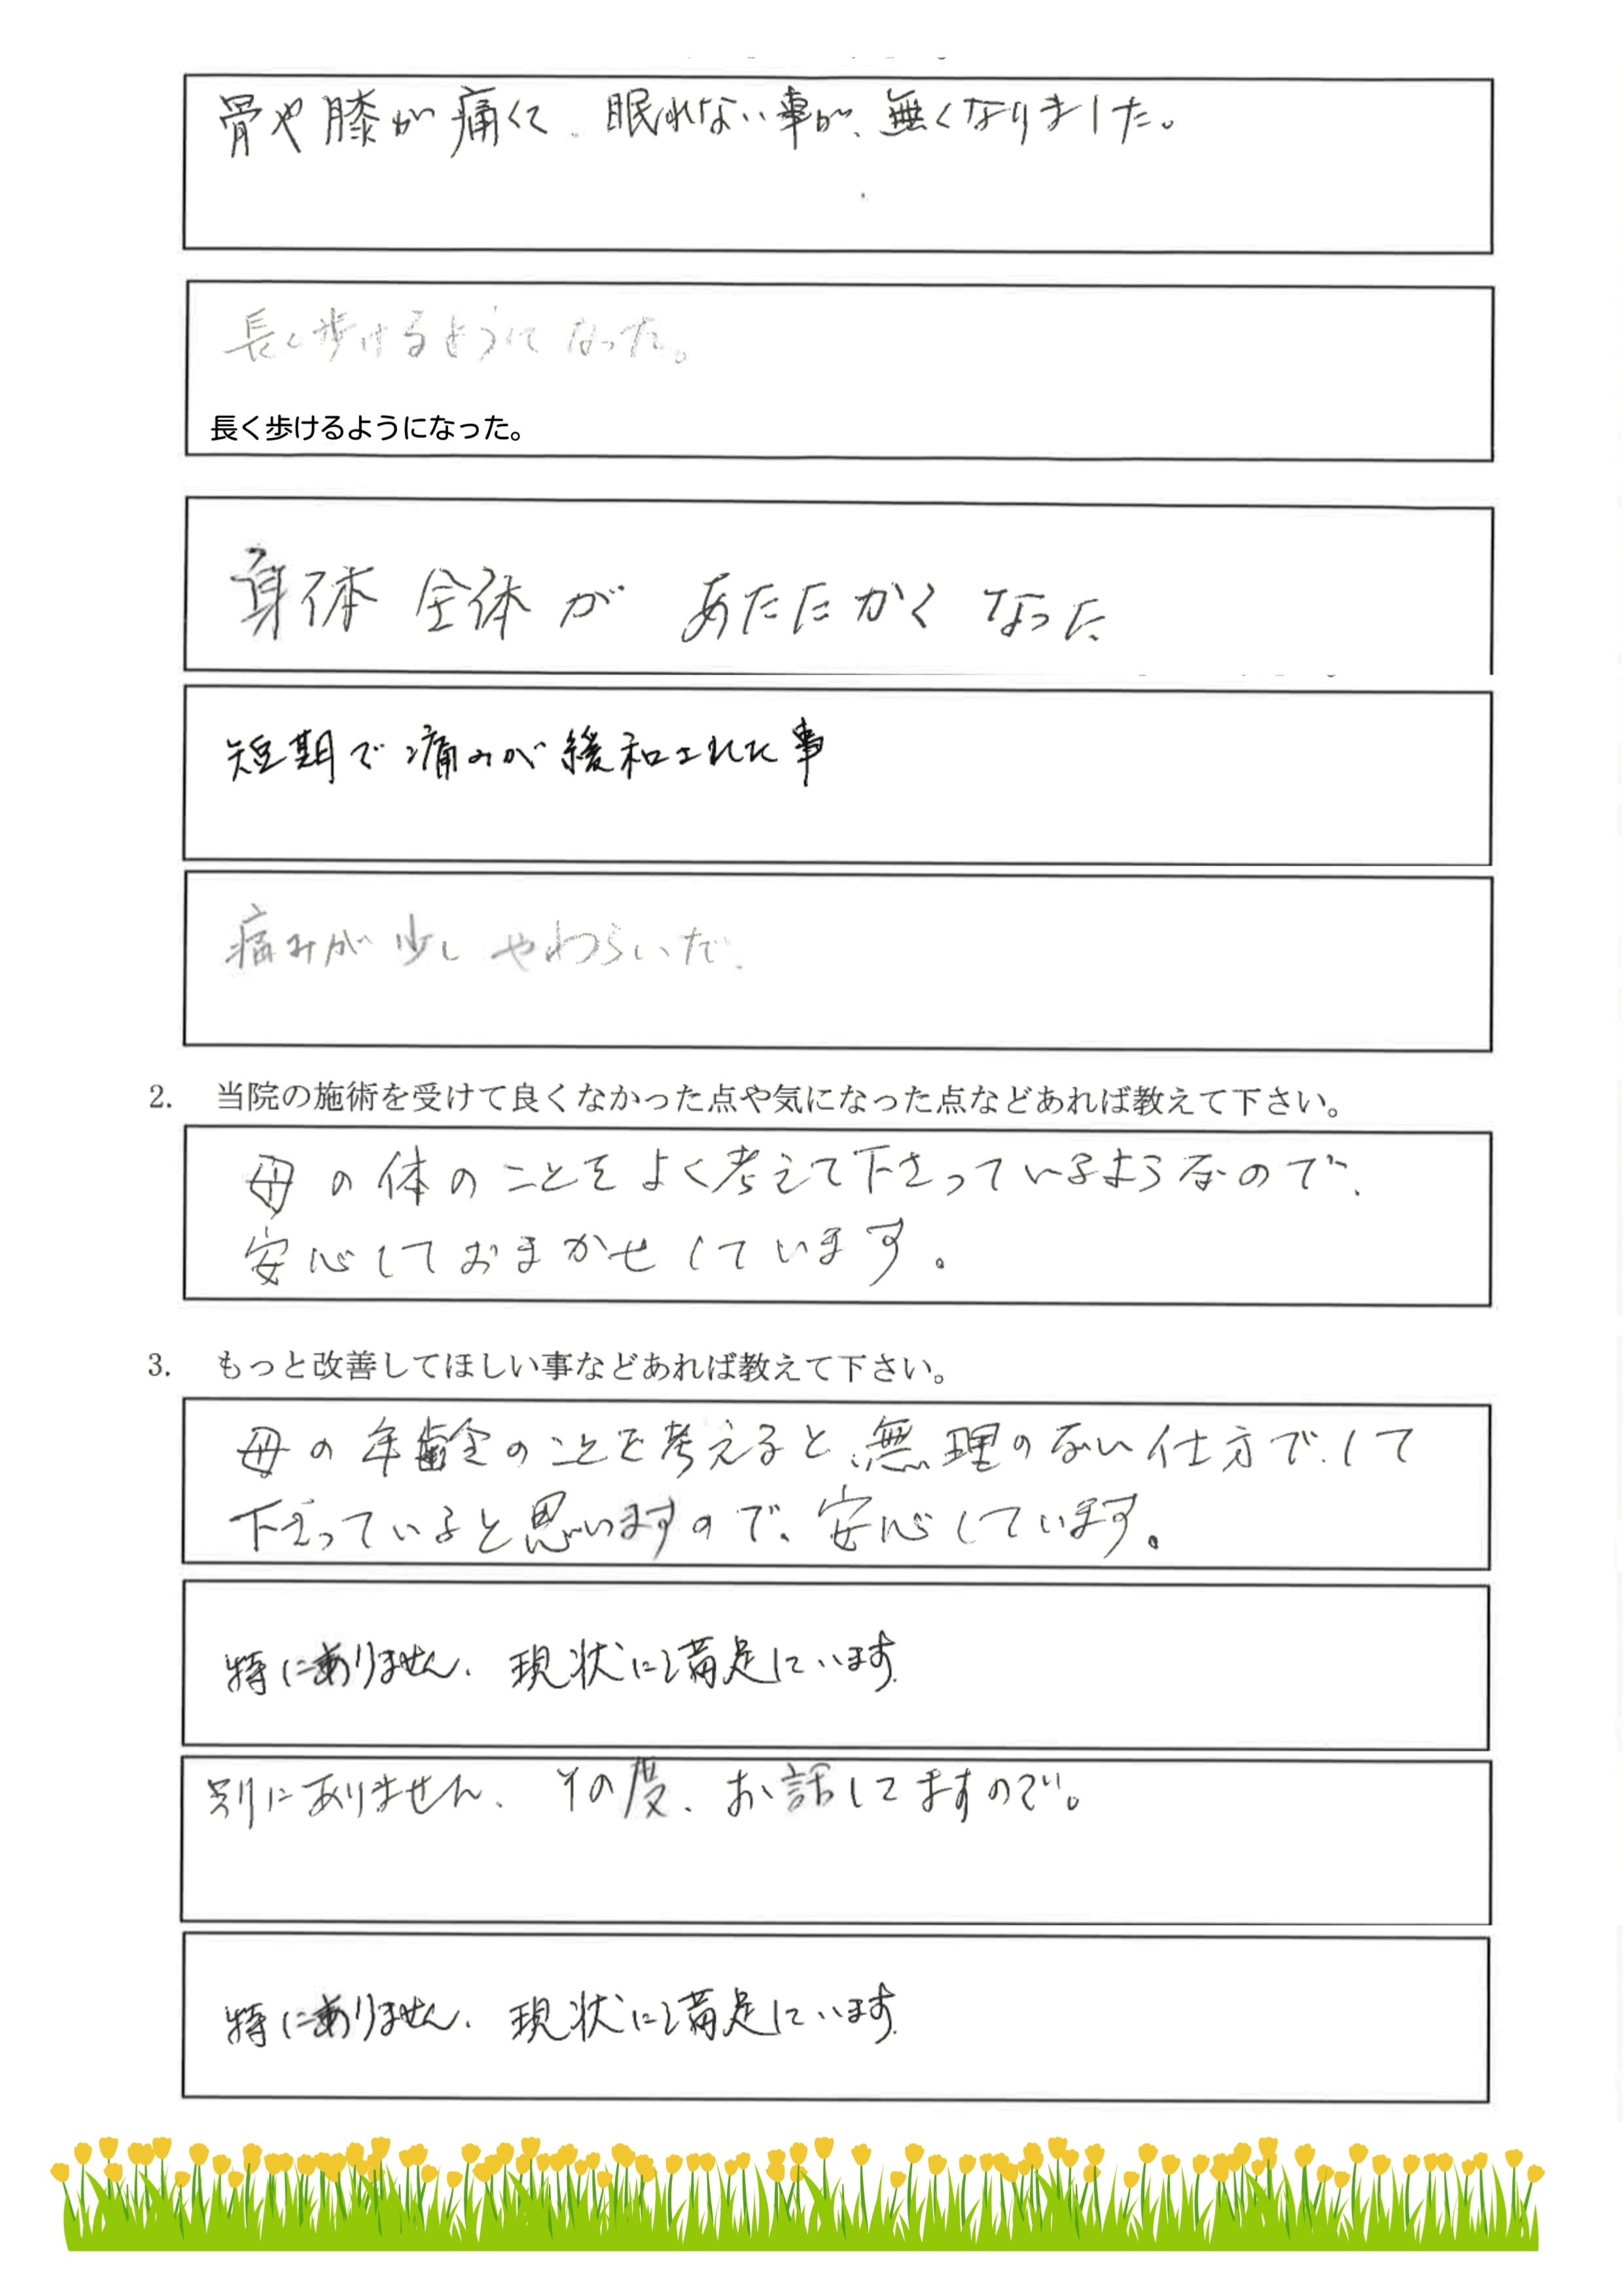 骨や膝が痛くて、眠れない事が、無くなりました。
長く歩けるようになった。
長く歩けるようになった。
身体全体があたたかくなった
短期で痛みが緩和された事
痛みが少しやわらいだ.
2. 当院の施術を受けて良くなかった点や気になった点などあれば教えて下さい。
母の体のことをよく考えて下さっているようなので、
安心しておまかせしています。
3. もっと改善してほしい事などあれば教えて下さい。
母の年齢のことを考えると、無理のない仕方でして
下さっていると思いますので、安心しています。
特にありません、現状に満足しています.
別にありません、その度、お話してますので。
特にありません、現状に満足しています.